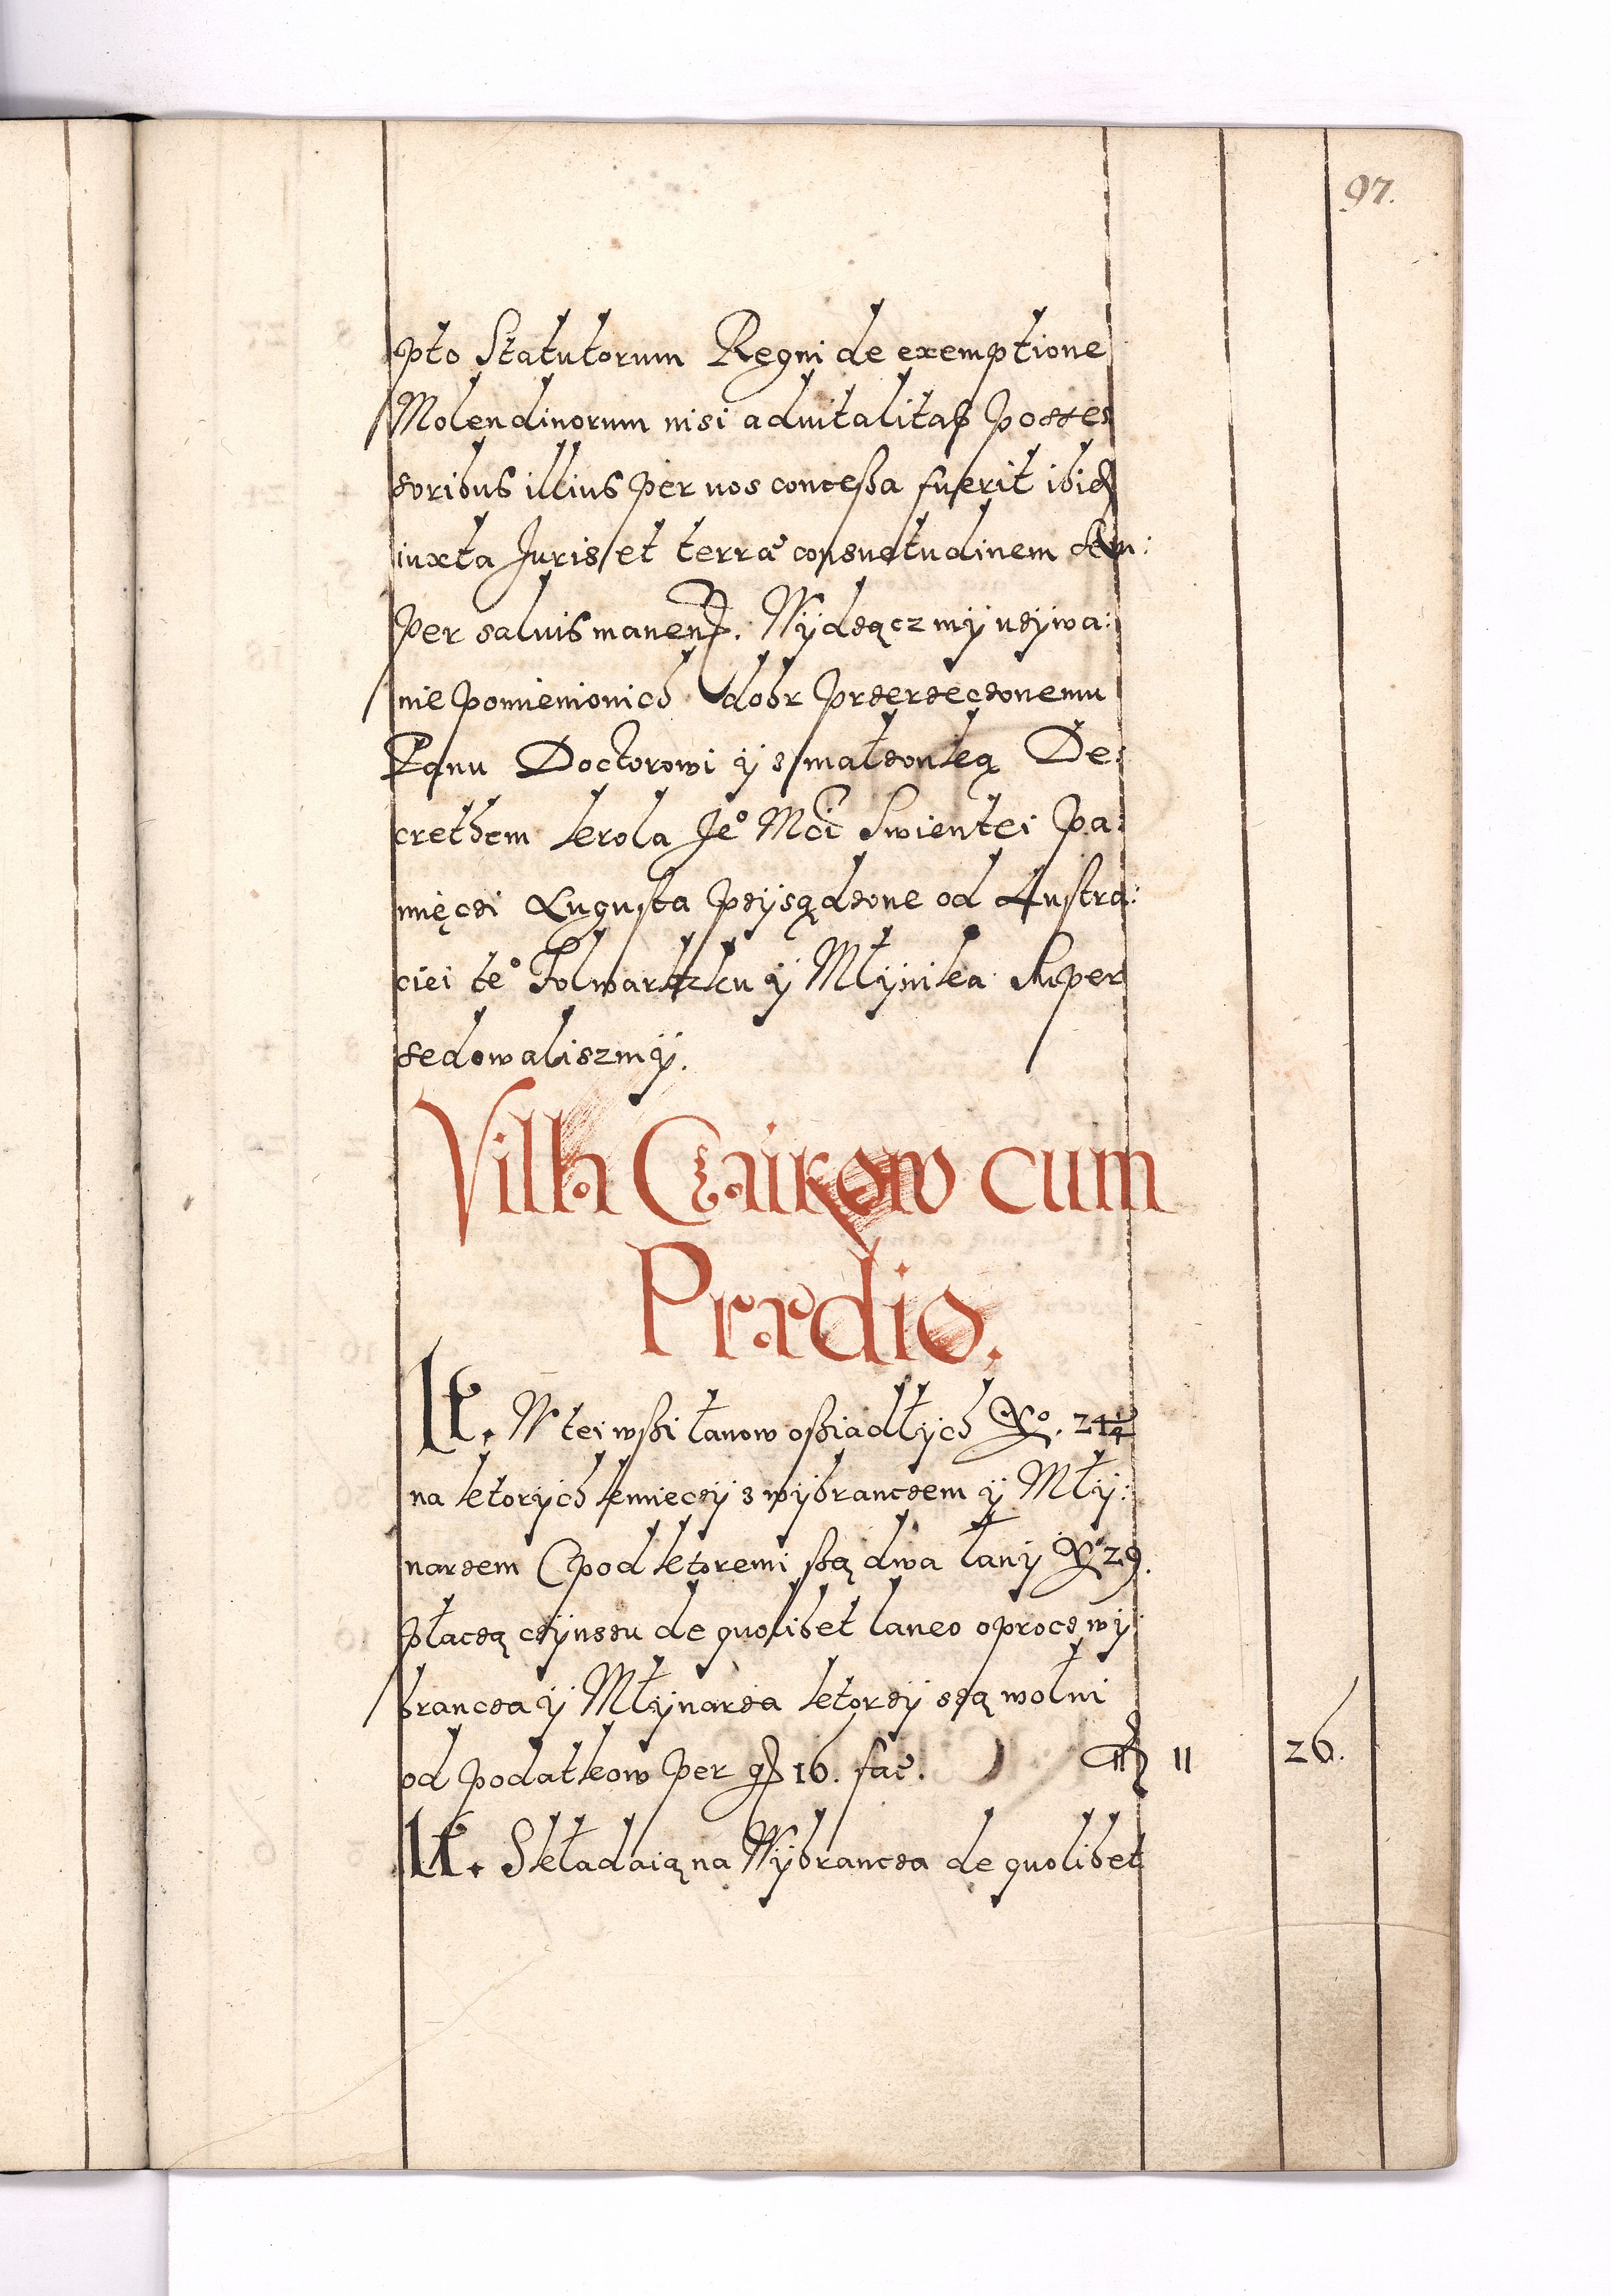 97.
pto Statutorum Regni de exemptione
Molendinorum nisi aduitalitas posses
soribus illius per nos concessa fuerit ibid
iuxta Juris et terræ consuetudinem sem:
per saluis manen. Wÿdzącz mÿ vzÿwa:
nie pomienionich dobr przerzeczonemu
Panu Doctorowi ÿ z małzonką De:
crethem krola Jeº Mći Swientei pa:
mięczi Augusta pzÿsądzone od Lustra:
ciei teº Folwarkzku ÿ Młÿnika Super
sedowaliszmÿ.
Villa Czaikow cum
Prædio.
It. W tei wssi łanow ossiadłÿch Nº. 24
na ktorÿch kmieczÿ z wÿbranczem ÿ Młÿ:
narzem (pod ktoremi ssą dwa łanÿ Nº 29.
płaczą czÿnszu de quolibet laneo oprocz wÿ
brancza ÿ Młÿnarza ktorzÿ są wolni
od podatkow per gr 16. fac. 11 26.
It. Składaią na Wÿbrancza de quolibet